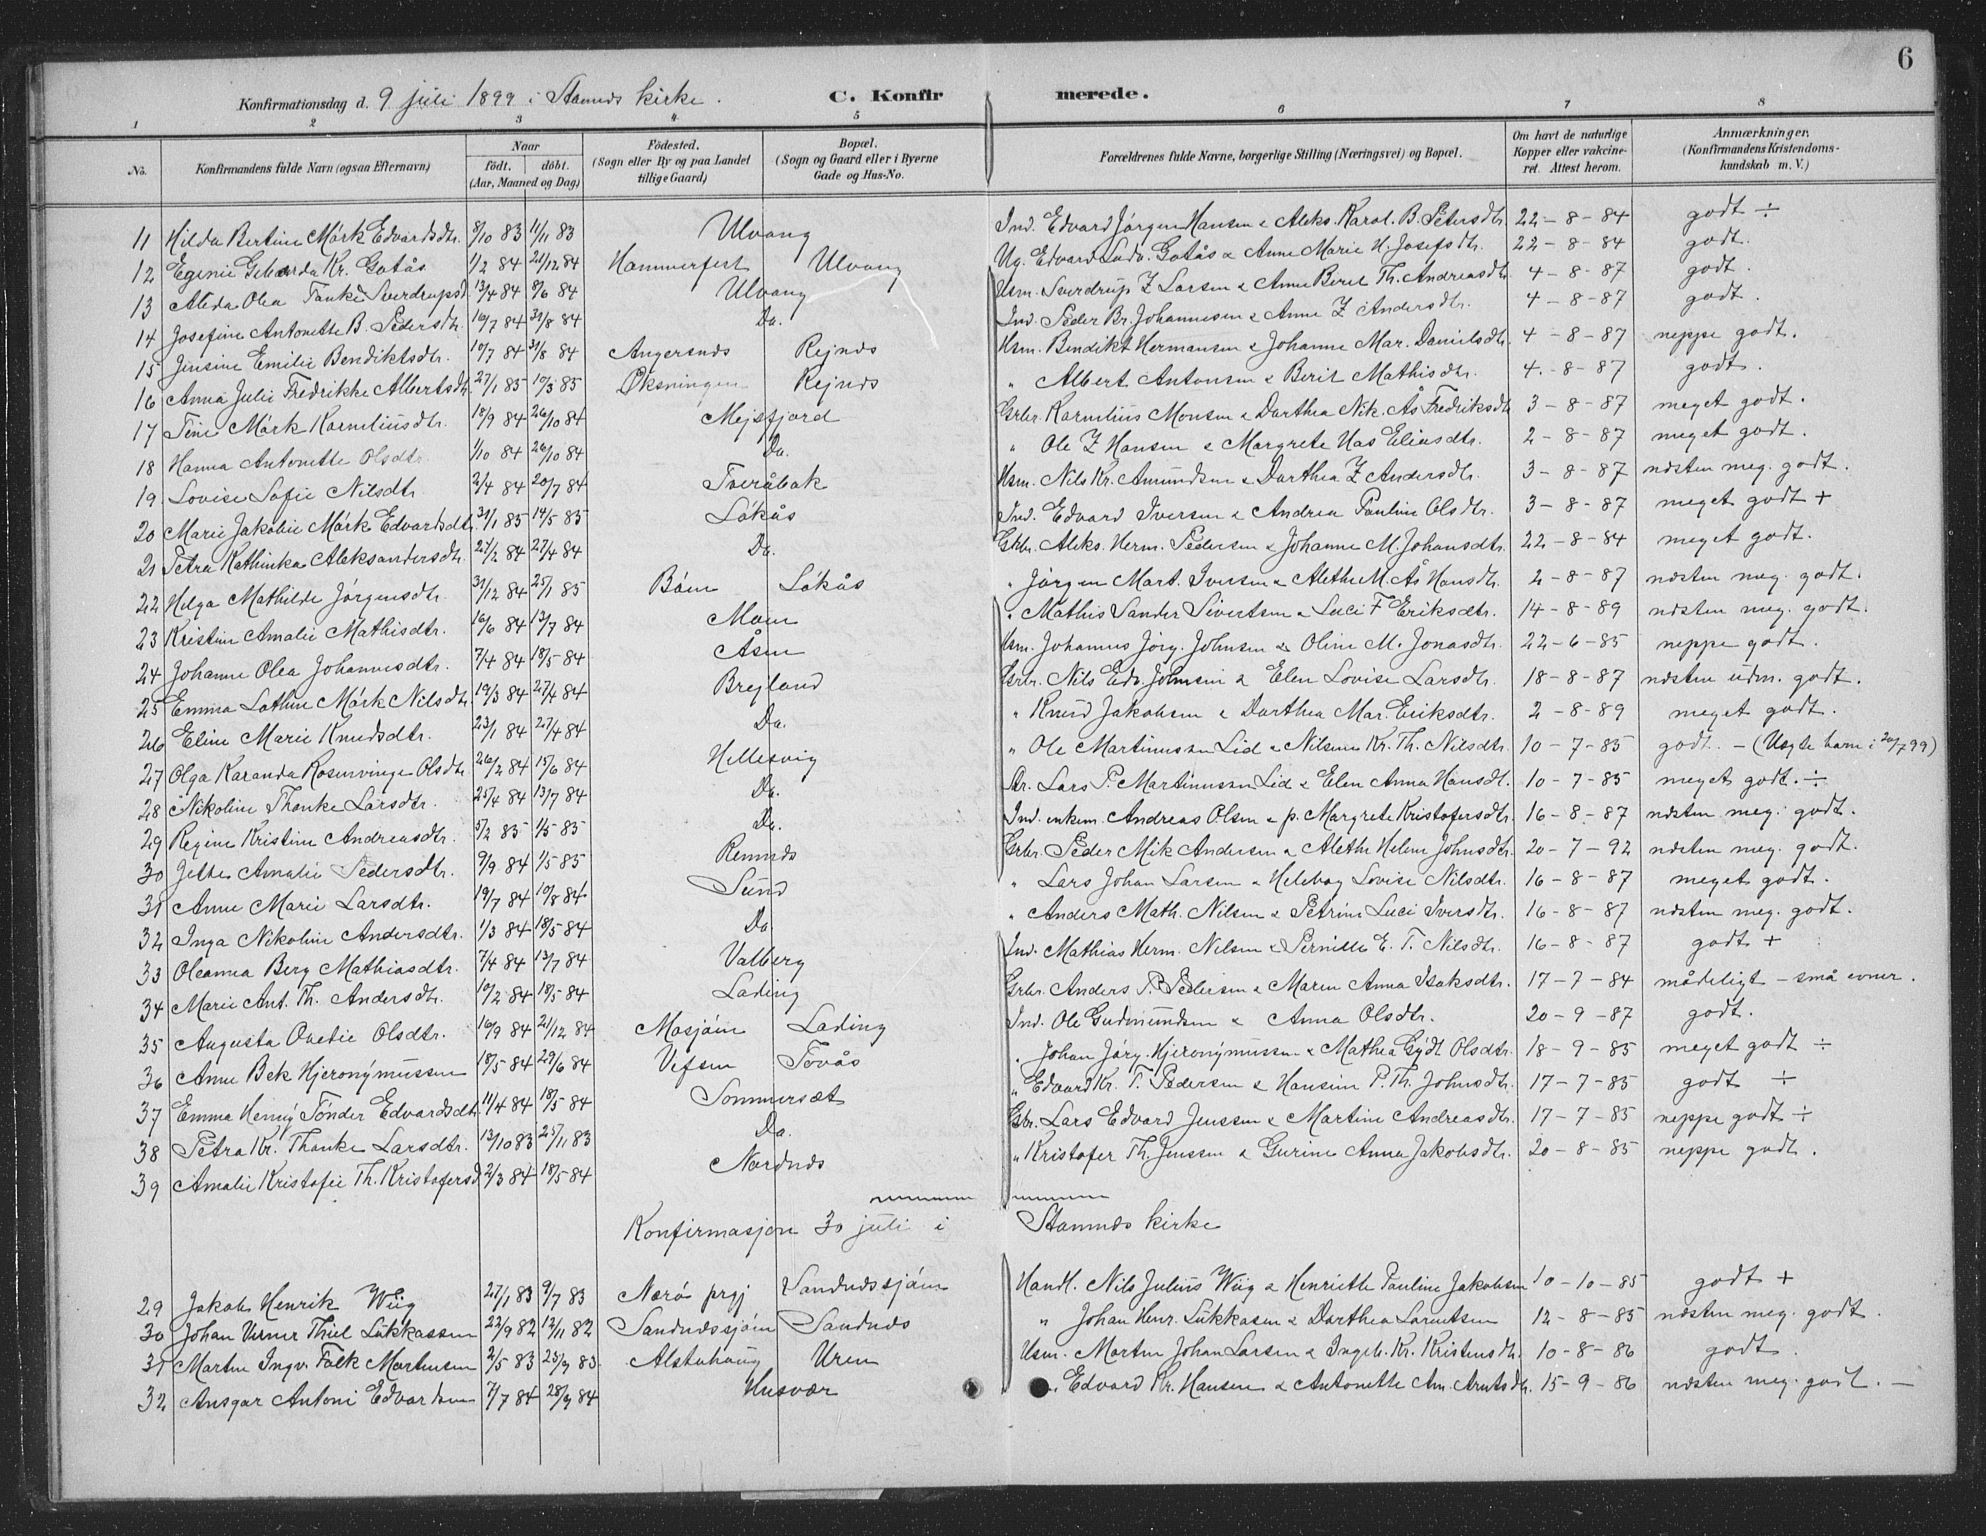 6
Konfirmationsdag d. 9 juli 1899 i Stamnes kirke. C. Konfirmerede.
1 2 3 4 5 6 7 8
No. Konfirmandens fulde Navn (ogsaa Efternavn) Naar født. døbt. (Aar, Maaned og Dag) Fødested. (Sogn eller By og paa Landet tillige Gaard) Bopæl. (Sogn og Gaard eller i Byerne Gade og Hus-No. Forældrenes fulde Navne, borgerlige Stilling (Næringsvei) og Bopæl. Om havt de naturlige Kopper eller vakcineret. Attest herom. Anmærkninger. (Konfirmandens Kristendomskundskab m. V.)
11 Hilda Bertine Mörk Edvardsdtr. 8/10 83 11/11 83 Ulvang Ind. Edvard Jörgen Hansen & Aleks. Karol. B. Petersdtr. 22-8-84 godt ÷
12 Kr. Gotås 1/2 84 21/12 84 Hammerfest Ulvang Edvard Ludv. Gotås & Anne Marie H. Josefsdtr. 22-8-84 godt.
13 Alida Olea Tanke Sverdrupsd. 13/4 84 8/6 84 Ulvang Usm. Sverdrup Z Larsen & Anne Berit Th. Andreasdtr. 4-8-87 godt.
14 Josefine Antonette B. Pedersdtr. 16/7 84 31/8 84 Do. Ind. Peder Br. Johannesen & Anne Z Andersdtr. 4-8-87 godt.
15 Jensine Emilie Bendiktsdtr. 10/7 84 31/8 84 Angersnes Rejnes Usm. Bendikt Hermansen & Johanne Mar. Danielsdtr. 4-8-87 neppe godt.
16 Anna Julie Fredrikke Albertsdtr. 27/1 85 10/3 85 Øksningen Rejnes " Albert Antonsen & Berit Mathisdtr. 4-8-87 godt.
17 Tine Mörk Korneliusdtr. 18/9 84 26/10 84 Mejsfjord Grbr. Kornelius Monsen & Dorthea Nik. Ås Fredriksdtr. 3-8-87 meget godt.
18 Hanna Antonette Olsdtr 1/10 84 26/10 84 Do. " Ole Z Hansen & Margrete Has Eliasdtr. 2-8-87 meget godt.
19 Lovise Sofie Nilsdtr 2/4 84 20/7 84 Tveråbak Usm. Nils Kr. Amundsen & Dorthea Z Andersdtr. 3-8-87 næsten meg. godt.
20 Marie Jakobie Mörk Edvardsdtr. 31/1 85 14/5 85 Lökås Ind. Edvard Iversen & Andrea Pauline Olsdtr. 3-8-87 meget godt +
21 Petra Kathinka Aleksandersdtr. 27/2 84 27/4 84 Do. Grbr. Aleks. Herm. Pedersen & Johanne M. Johansdtr. 22-8-84 meget godt.
22 Helga Mathilde Jörgensdtr. 31/12 84 25/1 85 Böen Lökås " Jörgen Mart. Iversen & Alethe M. Ås Hansdtr. 2-8-87 næsten meg. godt.
23 Kristine Amalie Mathisdtr. 16/6 84 13/7 84 Moen " Mathis Sander Sivertsen & Luci F Eriksdtr. 14-8-89 næsten meg. godt.
24 Johanne Olea Johannesdtr. 7/4 84 18/5 84 Åsen Usm. Johannes Jörg. Johnsen & Oline M. Jonasdtr. 22-6-85 neppe godt.
25 Emma Lathine Mörk Nilsdtr. 19/3 84 27/4 84 Brejland Grbr. Nils Edv. Johnsen & Elen Lovise Larsdtr. 18-8-87 næsten udm. godt.
26 Eline Marie Knudsdtr. 23/1 84 27/4 84 Do. " Knud Jakobsen & Dorthea Mar. Eriksdtr. 2-8-89 meget godt.
27 Olga Karanda Rosenvinge Olsdtr 26/2 84 15/6 84 Hellesvig " Ole Martinussen Lid & Nilsine Kr. Th. Nilsdtr. 10-7-85 godt. - (Uægte barn i 20/7 99)
28 Nikoline Thanke Larsdtr. 25/4 84 13/7 84 Do. Lars P. Martinussen Lid & Elen Anna Hansdtr. 10-7-85 meget godt. ÷
29 Regine Kristine Andreasdtr. 5/2 85 1/5 85 Do. Ind. enkem. Andreas Olsen & p. Margrete Kristofersdtr. 16-8-87 næsten meg. godt.
30 Jette Amalie Pedersdtr. 9/9 84 1/5 85 Remnes Grbr. Peder Mik Andersen & Alethe Helene Johnsdtr. 20-7-92 næsten meg. godt.
31 Anne Marie Larsdtr. 19/7 84 10/8 84 Sund " Lars Johan Larsen & Helebog Lovise Nilsdtr. 16-8-87 meget godt.
32 Inga Nikoline Andersdtr. 1/3 84 18/5 84 Do " Anders Math. Nilsen & Petrine Luci Iversdtr. 16-8-87 næsten meg. godt.
33 Oleanna Berg Mathiasdtr. 7/4 84 13/7 84 Valberg Ind. Mathias Herm. Nilsen & Pernille E. T. Nilsdtr. 16-8-87 godt +
34 Marie Ant. Th. Andersdtr. 10/2 84 18/5 84 Lading Grbr. Anders P. Pedersen & Maren Anna Isaksdtr. 17-7-84 mådeligt - små evner.
35 Augusta Ovetie Olsdtr. 16/9 84 21/12 84 Mosjöen Lading Ind. Ole Gudmundsen & Anna Olsdtr. 20-9-87 godt.
36 Anne Bek Hjeronymussen 18/5 84 29/6 84 Vefsen Tovås " Johan Jörg. Hjeronymussen & Mathea Gydt Olsdtr. 18-9-85 meget godt ÷
37 Emma Henny Tönder Edvardsdtr. 11/4 84 18/5 84 Sommersæt " Edvard Kr. T. Pedersen & Hansine P. Th. Johnsdtr. 17-7-85 godt ÷
38 Petra Kr. Thanke Larsdtr. 13/10 83 25/11 83 Do. Grbr. Lars Edvard Jenssen & Martine Andreasdtr. 17-7-85 neppe godt ÷
39 Amalie Kristofie Th. Kristofersd. 2/3 84 18/5 84 Nordnes " Kristofer Th. Jenssen & Gurine Anna Jakobsdtr. 20-8-85 neppe godt.
Konfirmasjon 30 juli i Stamnes kirke
29 Jakob Henrik Wiig 27/1 83 9/7 83 Nærö prgj Sandnessjöen Handl. Nils Julius Wiig & Henriette Pauline Jakobsen 10-10-85 godt +
30 Johan Verner Thiel Lukkassen 22/9 82 12/11 82 Sandnessjöen Sandnes " Johan Henr. Lukkasen & Dorthea Lorentsen 12-8-85 næsten meg. godt.
31 Martin Ingv. Falk Martinsen 2/5 83 25/9 83 Alstahoug Uren Usm. Martin Johan Larsen & Ingeb. Kr. Kristensdtr. 10-8-86 godt.
32 Ansgar Antoni Edvardsen 7/7 84 28/9 84 Husvær " Edvard Kr. Hansen & Antonette Am. Arntsdtr. 15-9-86 næsten meg. godt. -